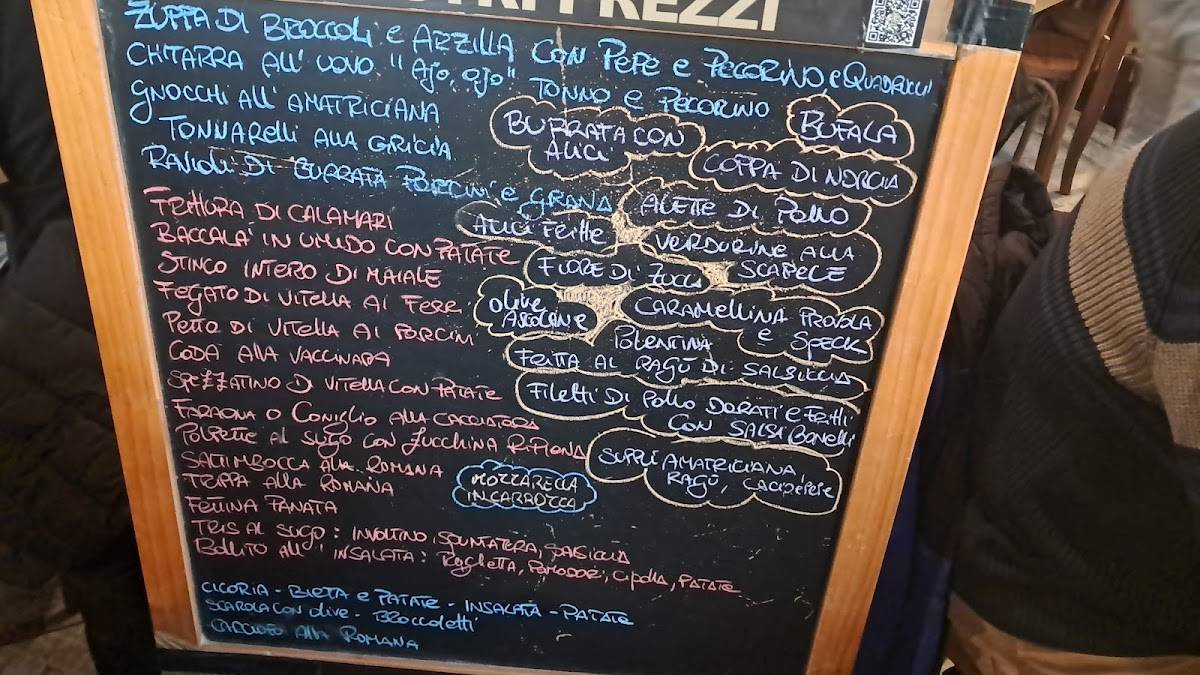 PREZZI
ZUPPA DI BROCCOLI e ARZILLA CON PEPE e PECORINO e QUADRUCCI
CHITARRA ALL' UOVO "Ajo, ojo" TONNO e PECORINO
GNOCCHI ALL' AMATRICIANA
TONNARELLI ALLA GRICIA
RAVIOLI DI BURRATA PORCINI e GRANA
BURRATA CON
ALICI
BUFALA
COPPA DI NORCIA
ALETTE DI POLLO
ALICI FRITTE
VERDURINE ALLA
SCAPECE
FIORE DI ZUCCA
OLIVE
ASCOLANE
CARAMELLINA PROVOLA
e SPECK
POLENTINA
FRITTA AL RAGÙ DI SALSICCIA
FILETTI DI POLLO DORATI e FRITTI
CON SALSA BONELLI
SUPPLÌ AMATRICIANA
RAGÙ, CACIOEPEPE
MOZZARELLA
IN CARROZZA
FRITTURA DI CALAMARI
BACCALA' IN UMIDO CON PATATE
STINCO INTERO DI MAIALE
FEGATO DI VITELLA AI FERRI
PETTO DI VITELLA AI PORCINI
CODA ALLA VACCINARA
SPEZZATINO DI VITELLA CON PATATE
FARAONA O CONIGLIO ALLA CACCIATORA
POLPETTE AL SUGO CON ZUCCHINA RIPIENA
SALTIMBOCCA ALLA ROMANA
TRIPPA ALLA ROMANA
FETTINA PANATA
TRIS AL SUGO: INVOLTINO, SPUNTATURA, SALSICCIA
BOLLITO ALL' INSALATA: RUGHETTA, POMODORI, CIPOLLA, PATATE
CICORIA - BIETA e PATATE - INSALATA - PATATE
SCAROLA CON OLIVE - BROCCOLETTI
CARCIOFO ALLA ROMANA